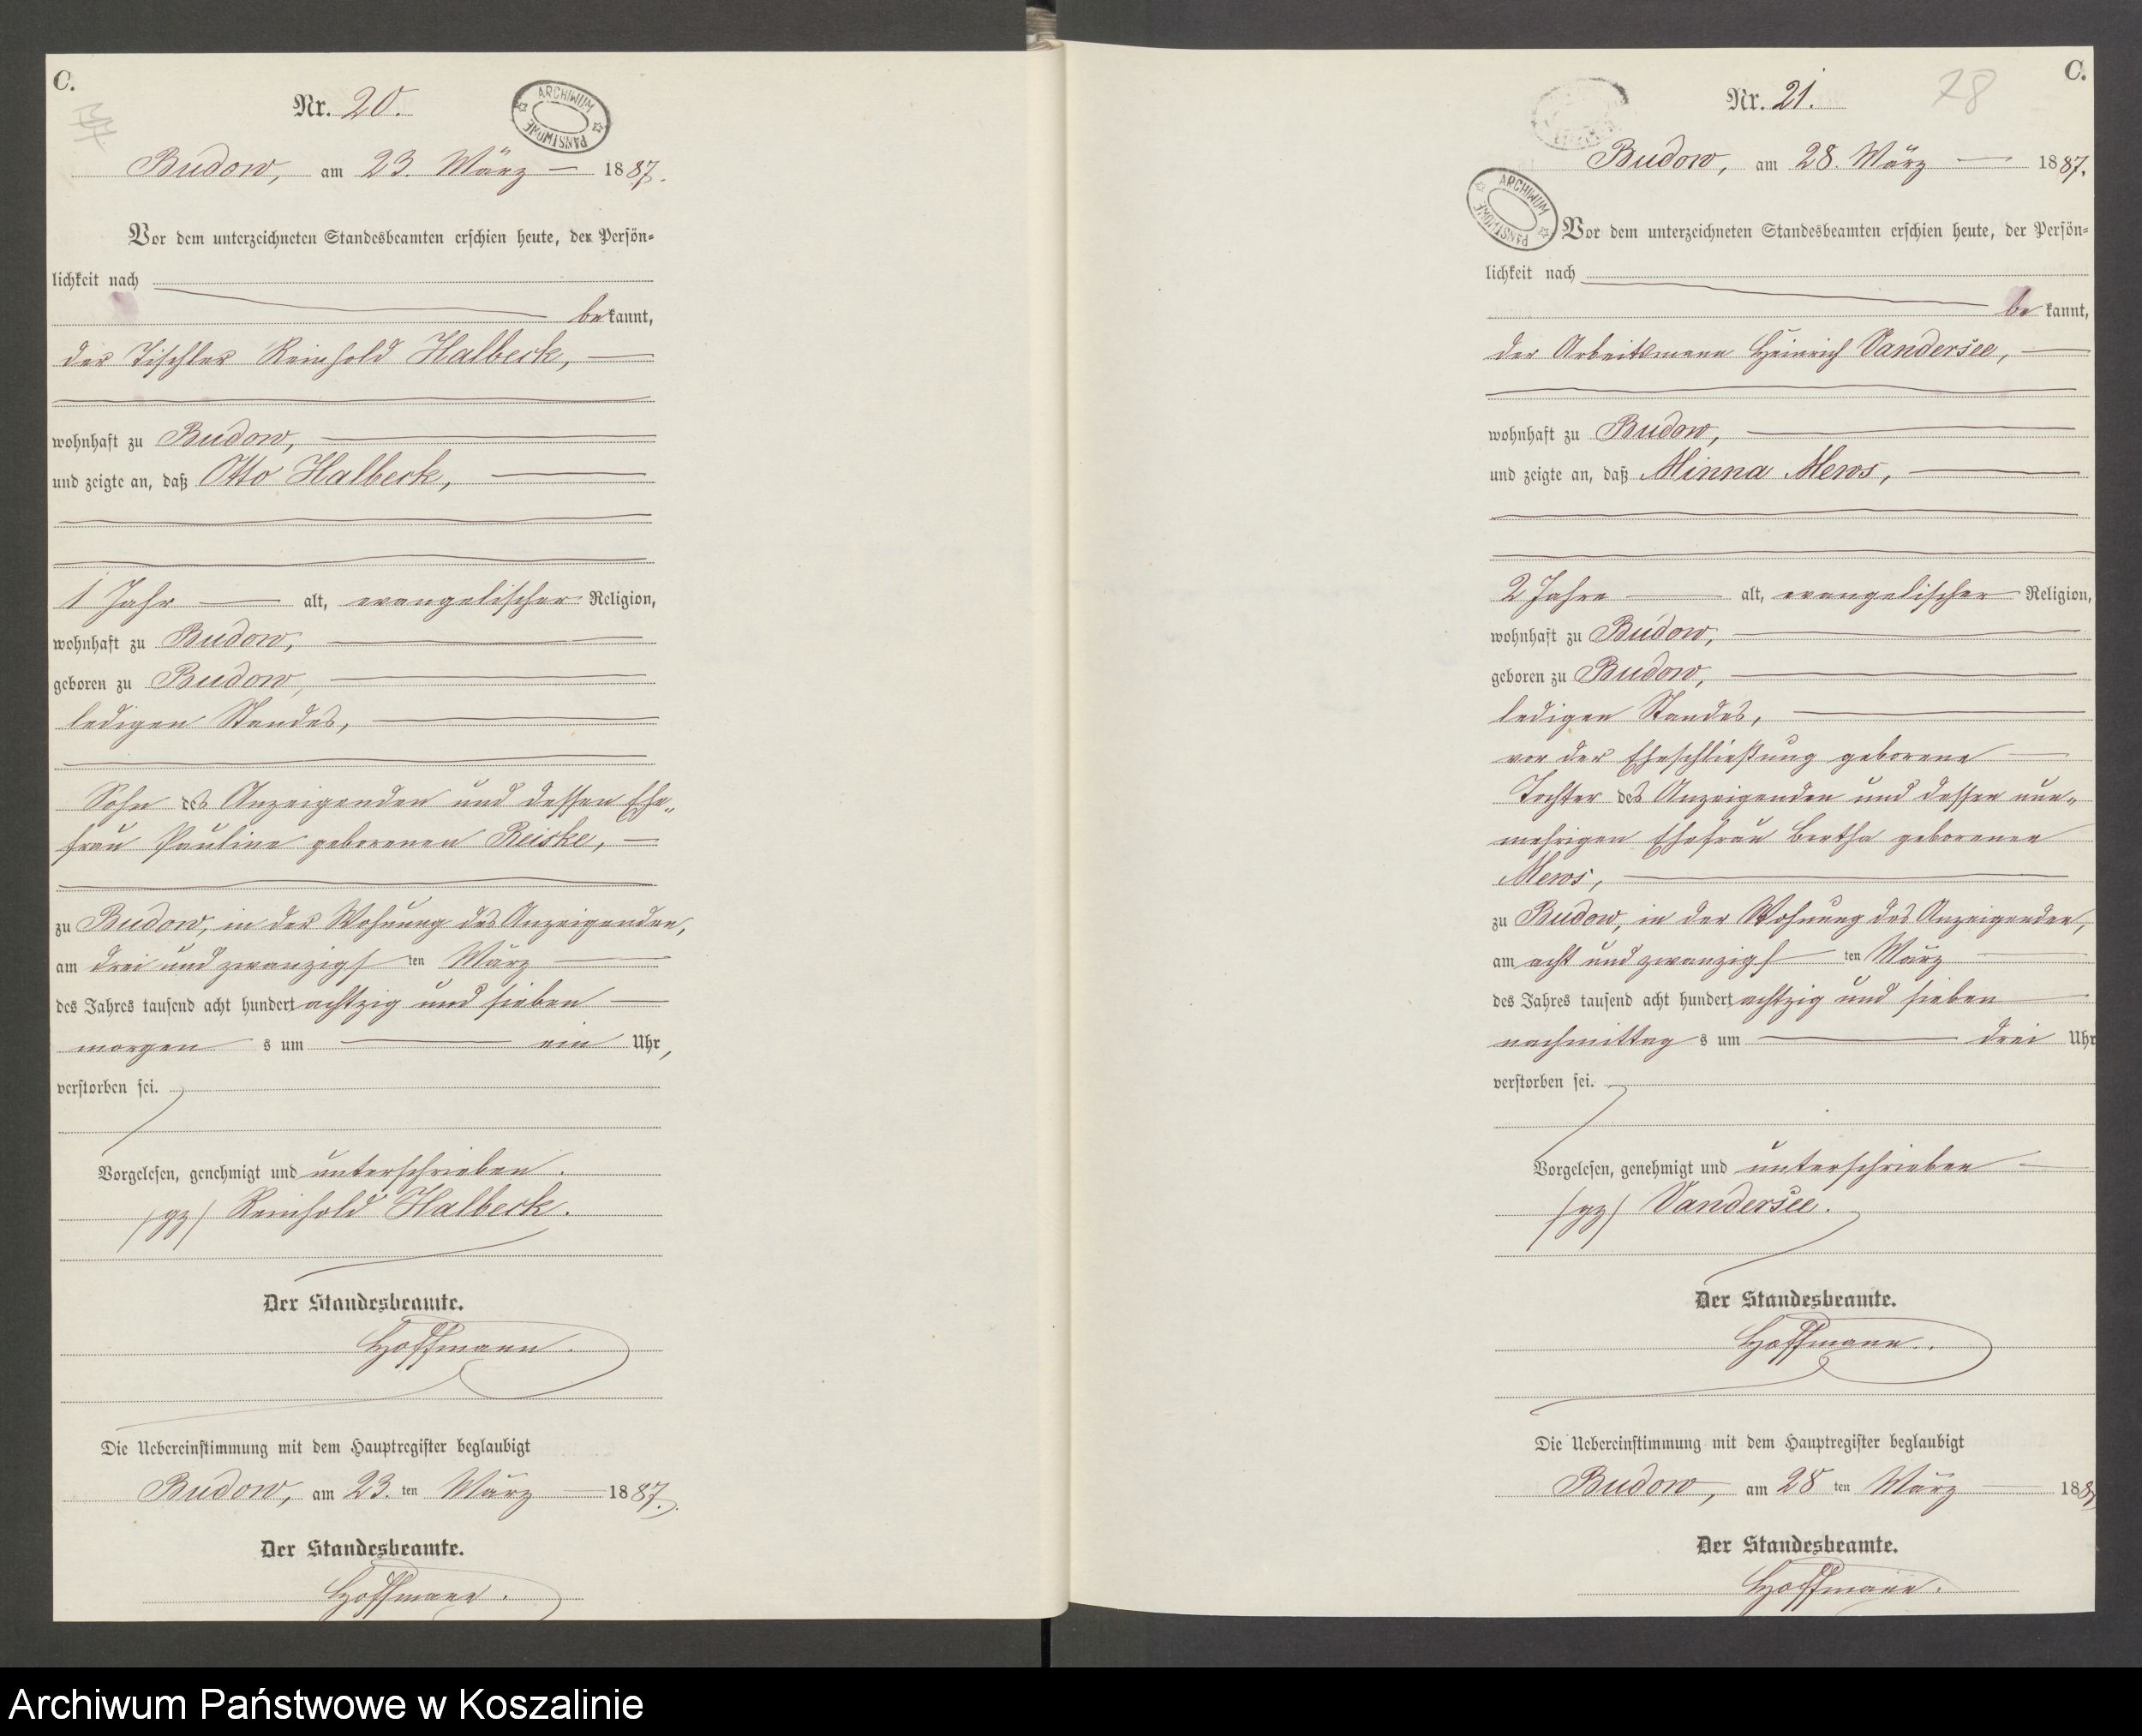 C.
Nr. 20.
ARCHIWUM PAŃSTWOWE
Budow, am 23. März 1887.
Vor dem unterzeichneten Standesbeamten erschien heute, der Persön-
lichkeit nach
bekannt,
der Tischler Reinhold Halbeck,
wohnhaft zu Budow,
und zeigte an, daß Otto Halbeck,
1 Jahr alt, evangelischer Religion,
wohnhaft zu Budow,
geboren zu Budow,
ledigen Standes,
Sohn des Anzeigenden und dessen Ehe-
frau Pauline geborenen Reiske,
zu Budow, in der Wohnung des Anzeigenden,
am drei und zwanzigsten März
des Jahres tausend acht hundert achtzig und sieben
morgens um ein Uhr,
verstorben sei.
Vorgelesen, genehmigt und unterschrieben.
(gz) Reinhold Halbeck.
Der Standesbeamte.
Hoffmann.
Die Uebereinstimmung mit dem Hauptregister beglaubigt
Budow, am 23.ten März 1887.
Der Standesbeamte.
Hoffmann.
C.
Nr. 21. 28
ARCHIWUM PAŃSTWOWE
Budow, am 28. März 1887.
Vor dem unterzeichneten Standesbeamten erschien heute, der Persön-
lichkeit nach
bekannt,
der Arbeitsmann Heinrich Vandersee,
wohnhaft zu Budow,
und zeigte an, daß Minna Mews,
2 Jahre alt, evangelischer Religion,
wohnhaft zu Budow,
geboren zu Budow,
ledigen Standes,
vor der Eheschließung geborene
Tochter des Anzeigenden und dessen nun-
mehrigen Ehefrau Bertha geborenen
Mews,
zu Budow, in der Wohnung des Anzeigenden,
am acht und zwanzigsten März
des Jahres tausend acht hundert achtzig und sieben
nachmittags um drei Uhr
verstorben sei.
Vorgelesen, genehmigt und unterschrieben
(gz) Vandersee.
Der Standesbeamte.
Hoffmann.
Die Uebereinstimmung mit dem Hauptregister beglaubigt
Budow, am 28ten März 1887
Der Standesbeamte.
Hoffmann.
Archiwum Państwowe w Koszalinie